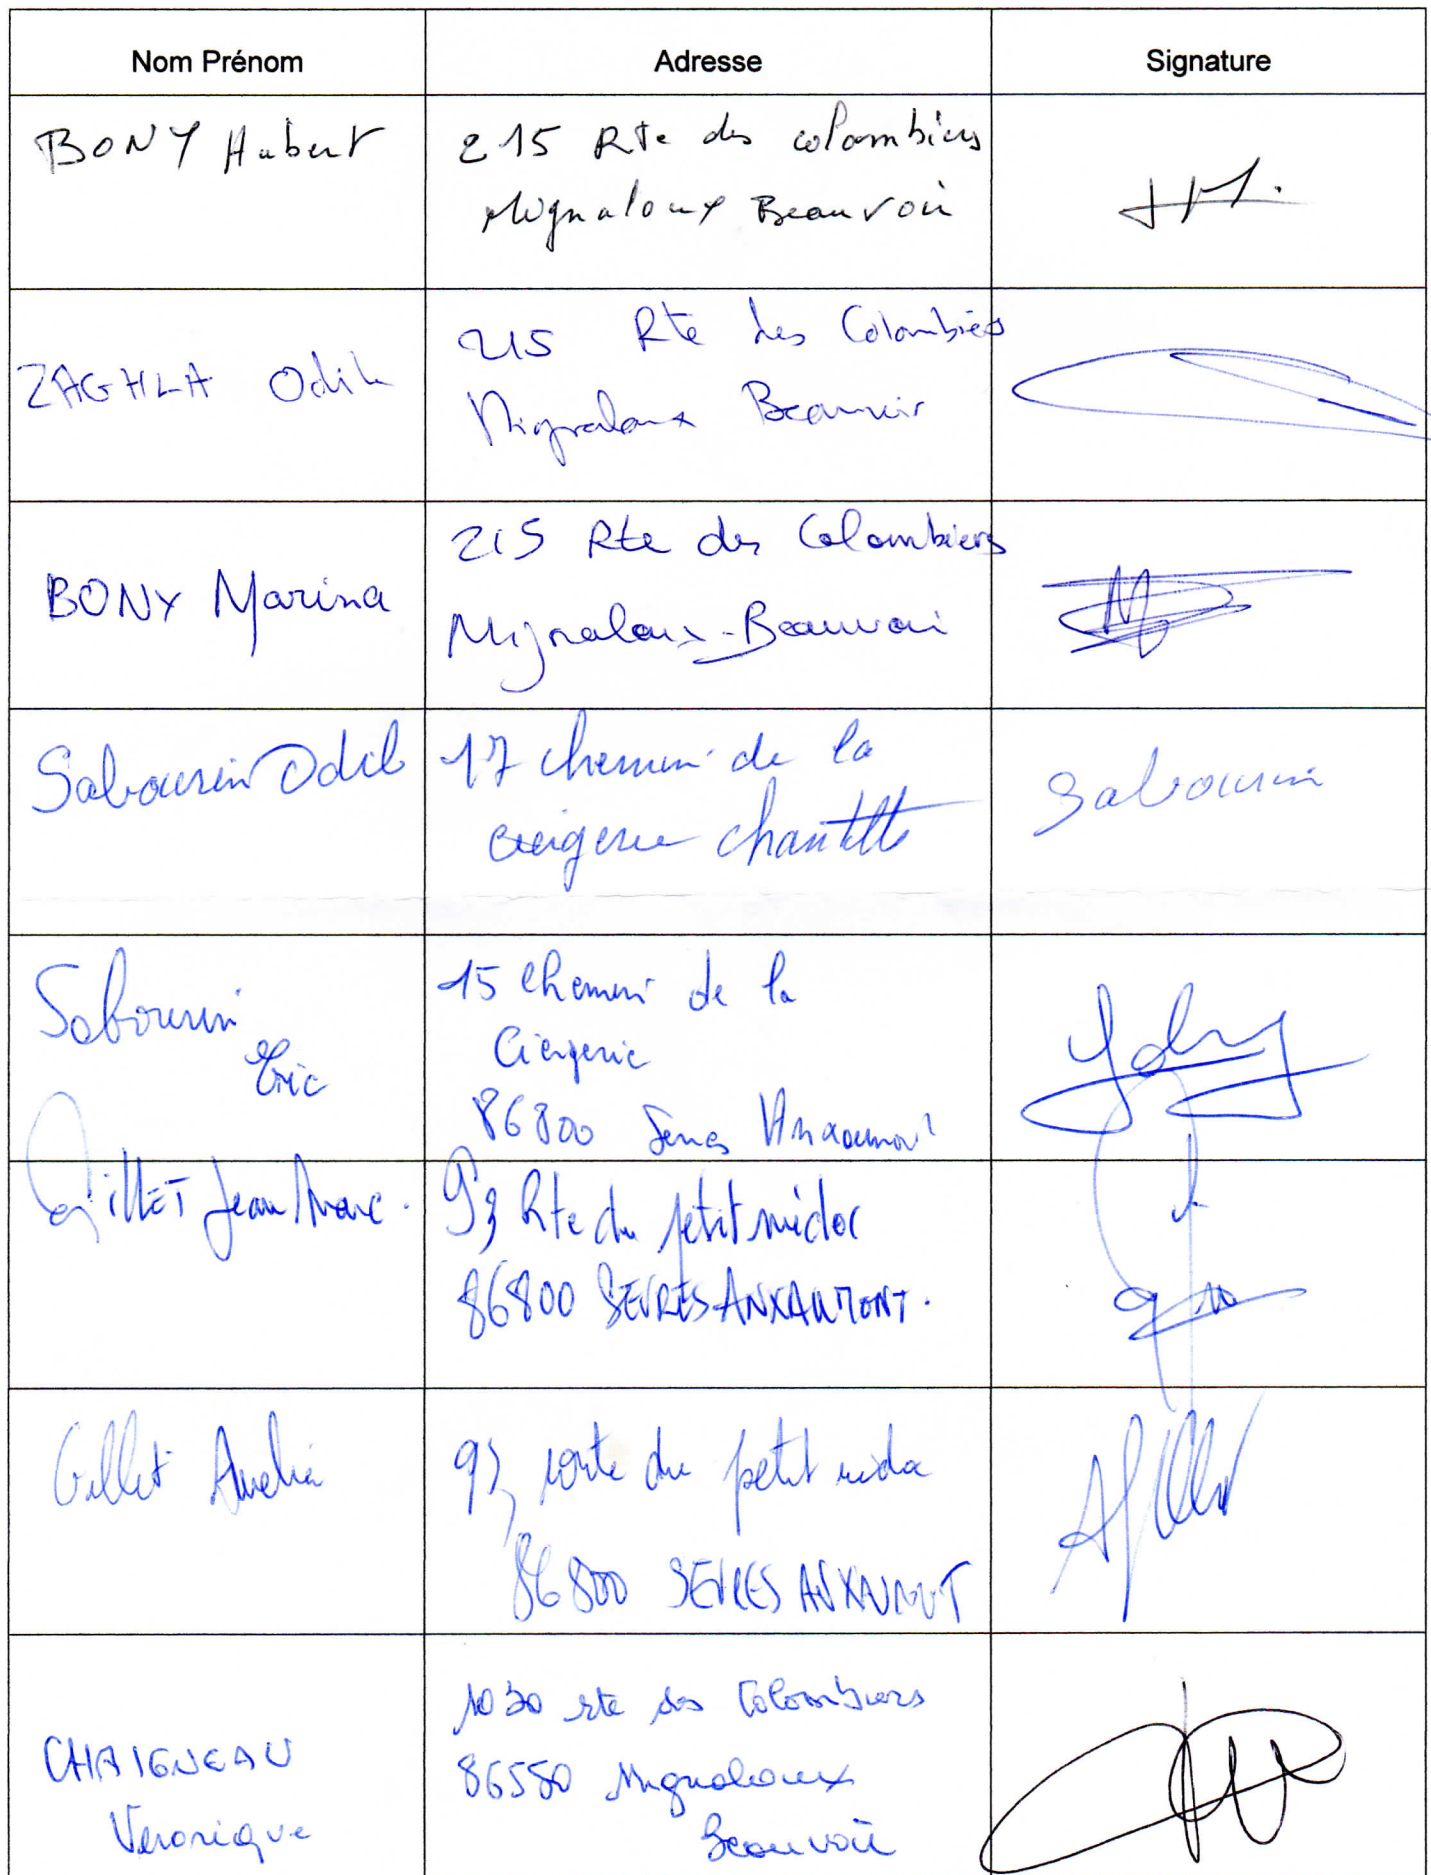 Nom Prénom Adresse Signature
BONY Hubert
215 Rte des colombiers
Mignaloux Beauvoir
ZAGHLA Odile
215 Rte des Colombiers
Mignaloux Beauvoir
BONY Marina
215 Rte des Colombiers
Mignaloux-Beauvoir
Sabourin Odile
17 chemin de la
ciergerie
Sabourin
Sabourin
Eric
15 chemin de la
Ciergerie
86800 Sevres Anxaumont
GillET Jean Marc.
93 Rte du petit médoc
86800 SEVRES ANXAUMONT.
Gillet Amelie
93 route du petit medoc
86800 SEVRES ANXAUMONT
CHAIGNEAU
Veronique
1030 rte des Colombiers
86550 Mignaloux
Beauvoir